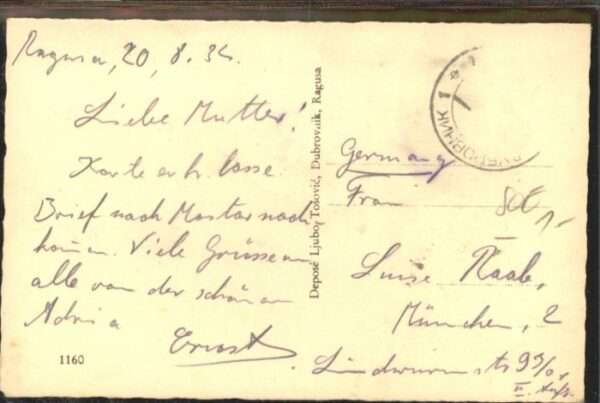 Ragusa, 20, 8. 32.
Liebe Mutter!
Karte erh. lasse
Brief nach Mostar nach
kommen. Viele Grüsse an
alle von der schönen
Adria
Ernst
1160
Deposé Ljubo Tošović, Dubrovnik, Ragusa
ДУБРОВНИК 1
Germany
Frau
Luise Raab,
München, 2
Lindwurmstr 95/0
II. Aufg.